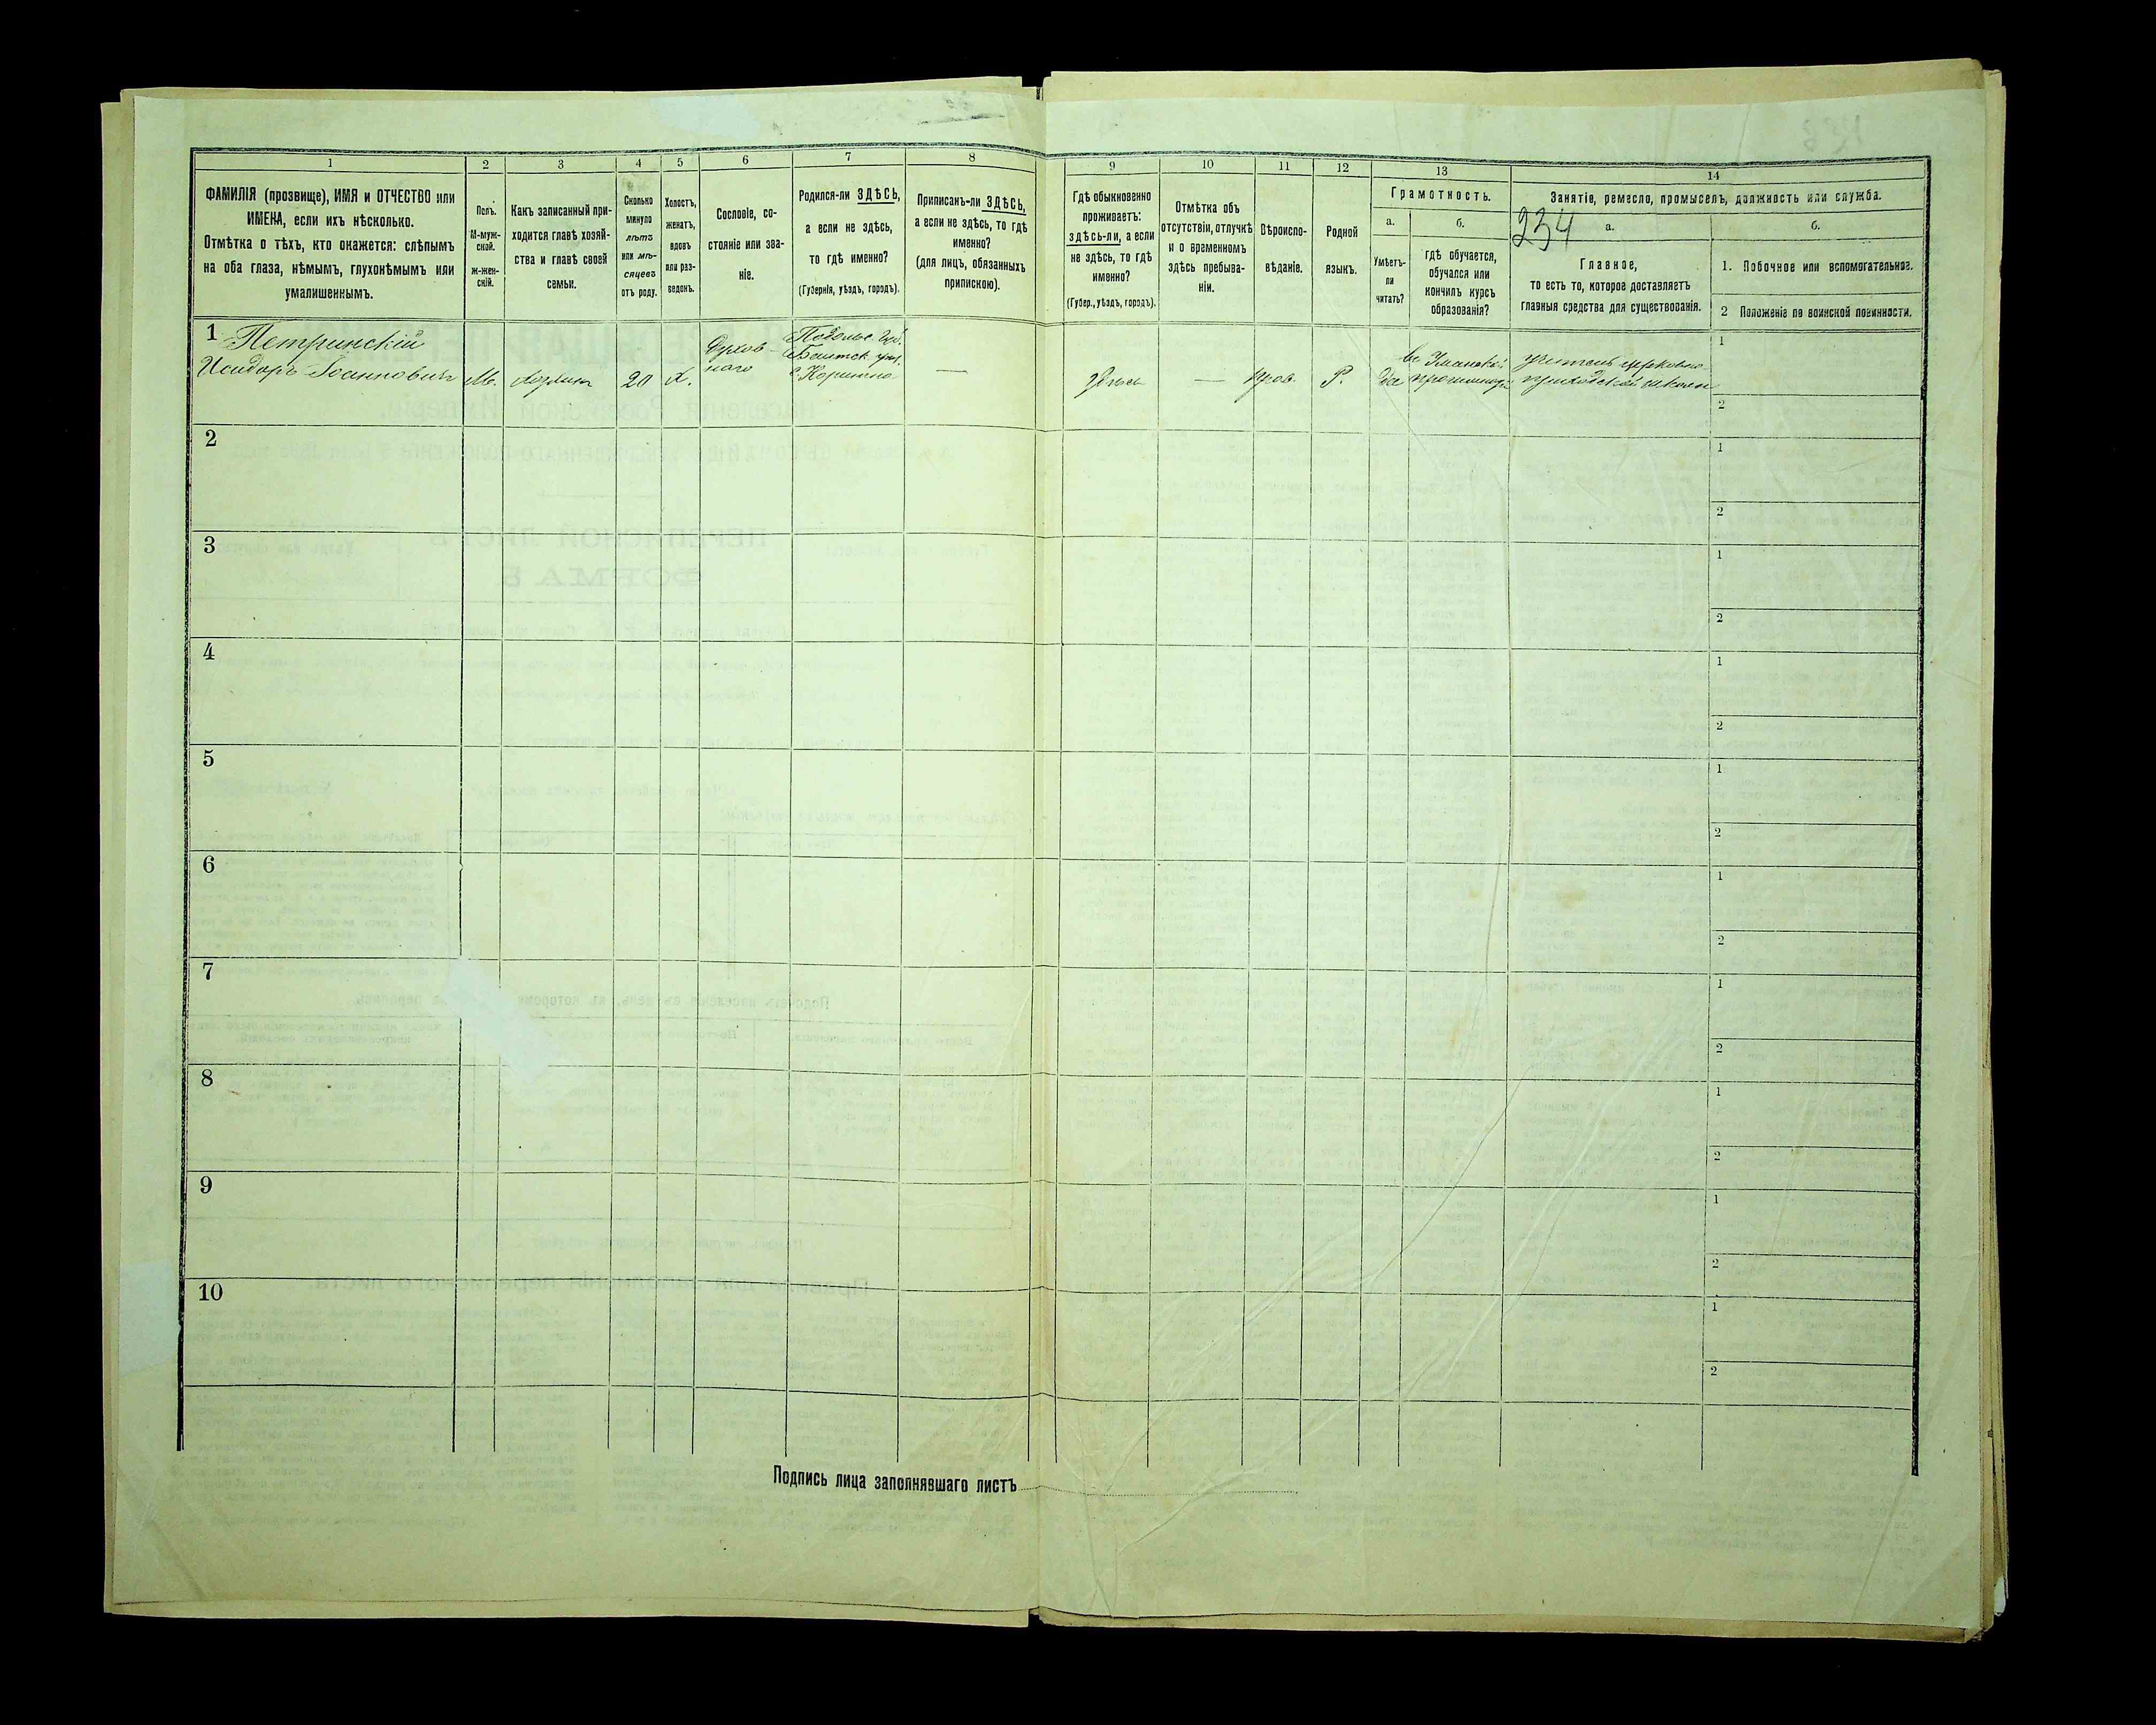 1 2 3 4 5 6 7 8 9 10 11 12 13 14
ФАМИЛІЯ (прозвище), ИМЯ и ОТЧЕСТВО или
ИМЕНА, если ихъ нѣсколько.
Отмѣтка о тѣхъ, кто окажется: слѣпымъ
на оба глаза, нѣмымъ, глухонѣмымъ или
умалишеннымъ.
Полъ.
М-муж-
ской.
ж-жен-
скій.
Какъ записанный при-
ходится главѣ хозяй-
ства и главѣ своей
семьи.
Сколько
минуло
лѣтъ
или мѣ-
сяцевъ
отъ роду.
Холостъ,
женатъ,
вдовъ
или раз-
веденъ.
Сословіе, со-
стояніе или зва-
ніе.
Родился-ли ЗДѢСЬ,
а если не здѣсь,
то гдѣ именно?
(Губернія, уѣздъ, городъ).
Приписанъ-ли ЗДѢСЬ,
а если не здѣсь, то гдѣ
именно?
(для лицъ, обязанныхъ
припискою).
Гдѣ обыкновенно
проживаетъ:
здѣсь-ли, а если
не здѣсь, то гдѣ
именно?
(Губер., уѣздъ, городъ).
Отмѣтка объ
отсутствіи, отлучкѣ
и о временномъ
здѣсь пребыва-
ніи.
Вѣроиспо-
вѣданіе.
Родной
языкъ.
Грамотность.
а.
Умѣетъ-
ли
читать?
б.
гдѣ обучается,
обучался или
кончилъ курсъ
образованія?
Занятіе, ремесло, промыселъ, должность или служба.
234
а.
Главное,
то есть то, которое доставляетъ
главныя средства для существованія.
б.
1. Побочное или вспомогательное.
2 Положеніе по воинской повинности.
1
Петринскій
Исидоръ Іоанновичъ
М.
хозяинъ
20
Х.
Духов-
наго
Подольс. губ.
Балтск. уѣз.
с.
—
здѣсь
—
прав.
Р.
да
въ Уманской
учитель церковно-
приходской школы
1
2
2
1
2
3
1
2
4
1
2
5
1
2
6
1
2
7
1
2
8
1
2
9
1
2
10
1
2
Подпись лица заполнявшаго листъ